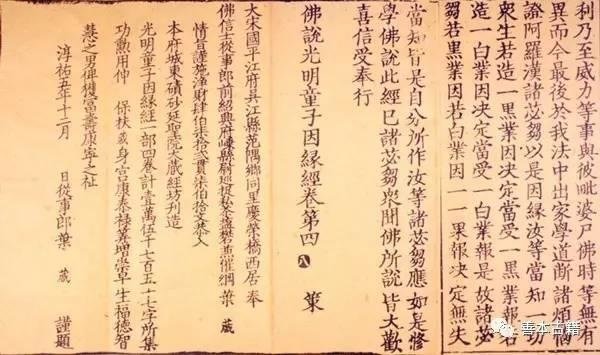 利乃至威力等事與彼毗婆尸佛時等無有
異而今最後於我法中出家學道斷諸煩惱
證阿羅漢諸苾芻以是因緣汝等當知一切
衆生若造一黑業因決定當受一黑業報若
造一白業因決定當受一白業報是故諸苾
芻若黑業因若白業因一一果報決定無失
當知皆是自分所作汝等諸苾芻應如是修
學佛說此經已諸苾芻衆聞佛所說皆大歡
喜信受奉行
佛說光明童子因緣經卷第四 八 策
大宋國平江府吳江縣范隅鄉同里慶榮橋西居奉
佛信士從事郎前紹興府嵊縣尉巡捉私茶鹽礬兼催綱葉 葳
情旨謹施淨財肆伯柒拾貳貫柒伯拾文恭入
本府城東磧砂延聖院大藏經坊刊造
光明童子因緣經一部四卷計壹萬伍千七百五十七字所集
功勳用仲 保扶葳身宮康泰祿筭增崇早生福德智
慧之男俾獲富壽康寧之祉
淳祐五年十二月 日從事郎葉 葳 謹題
善本古籍